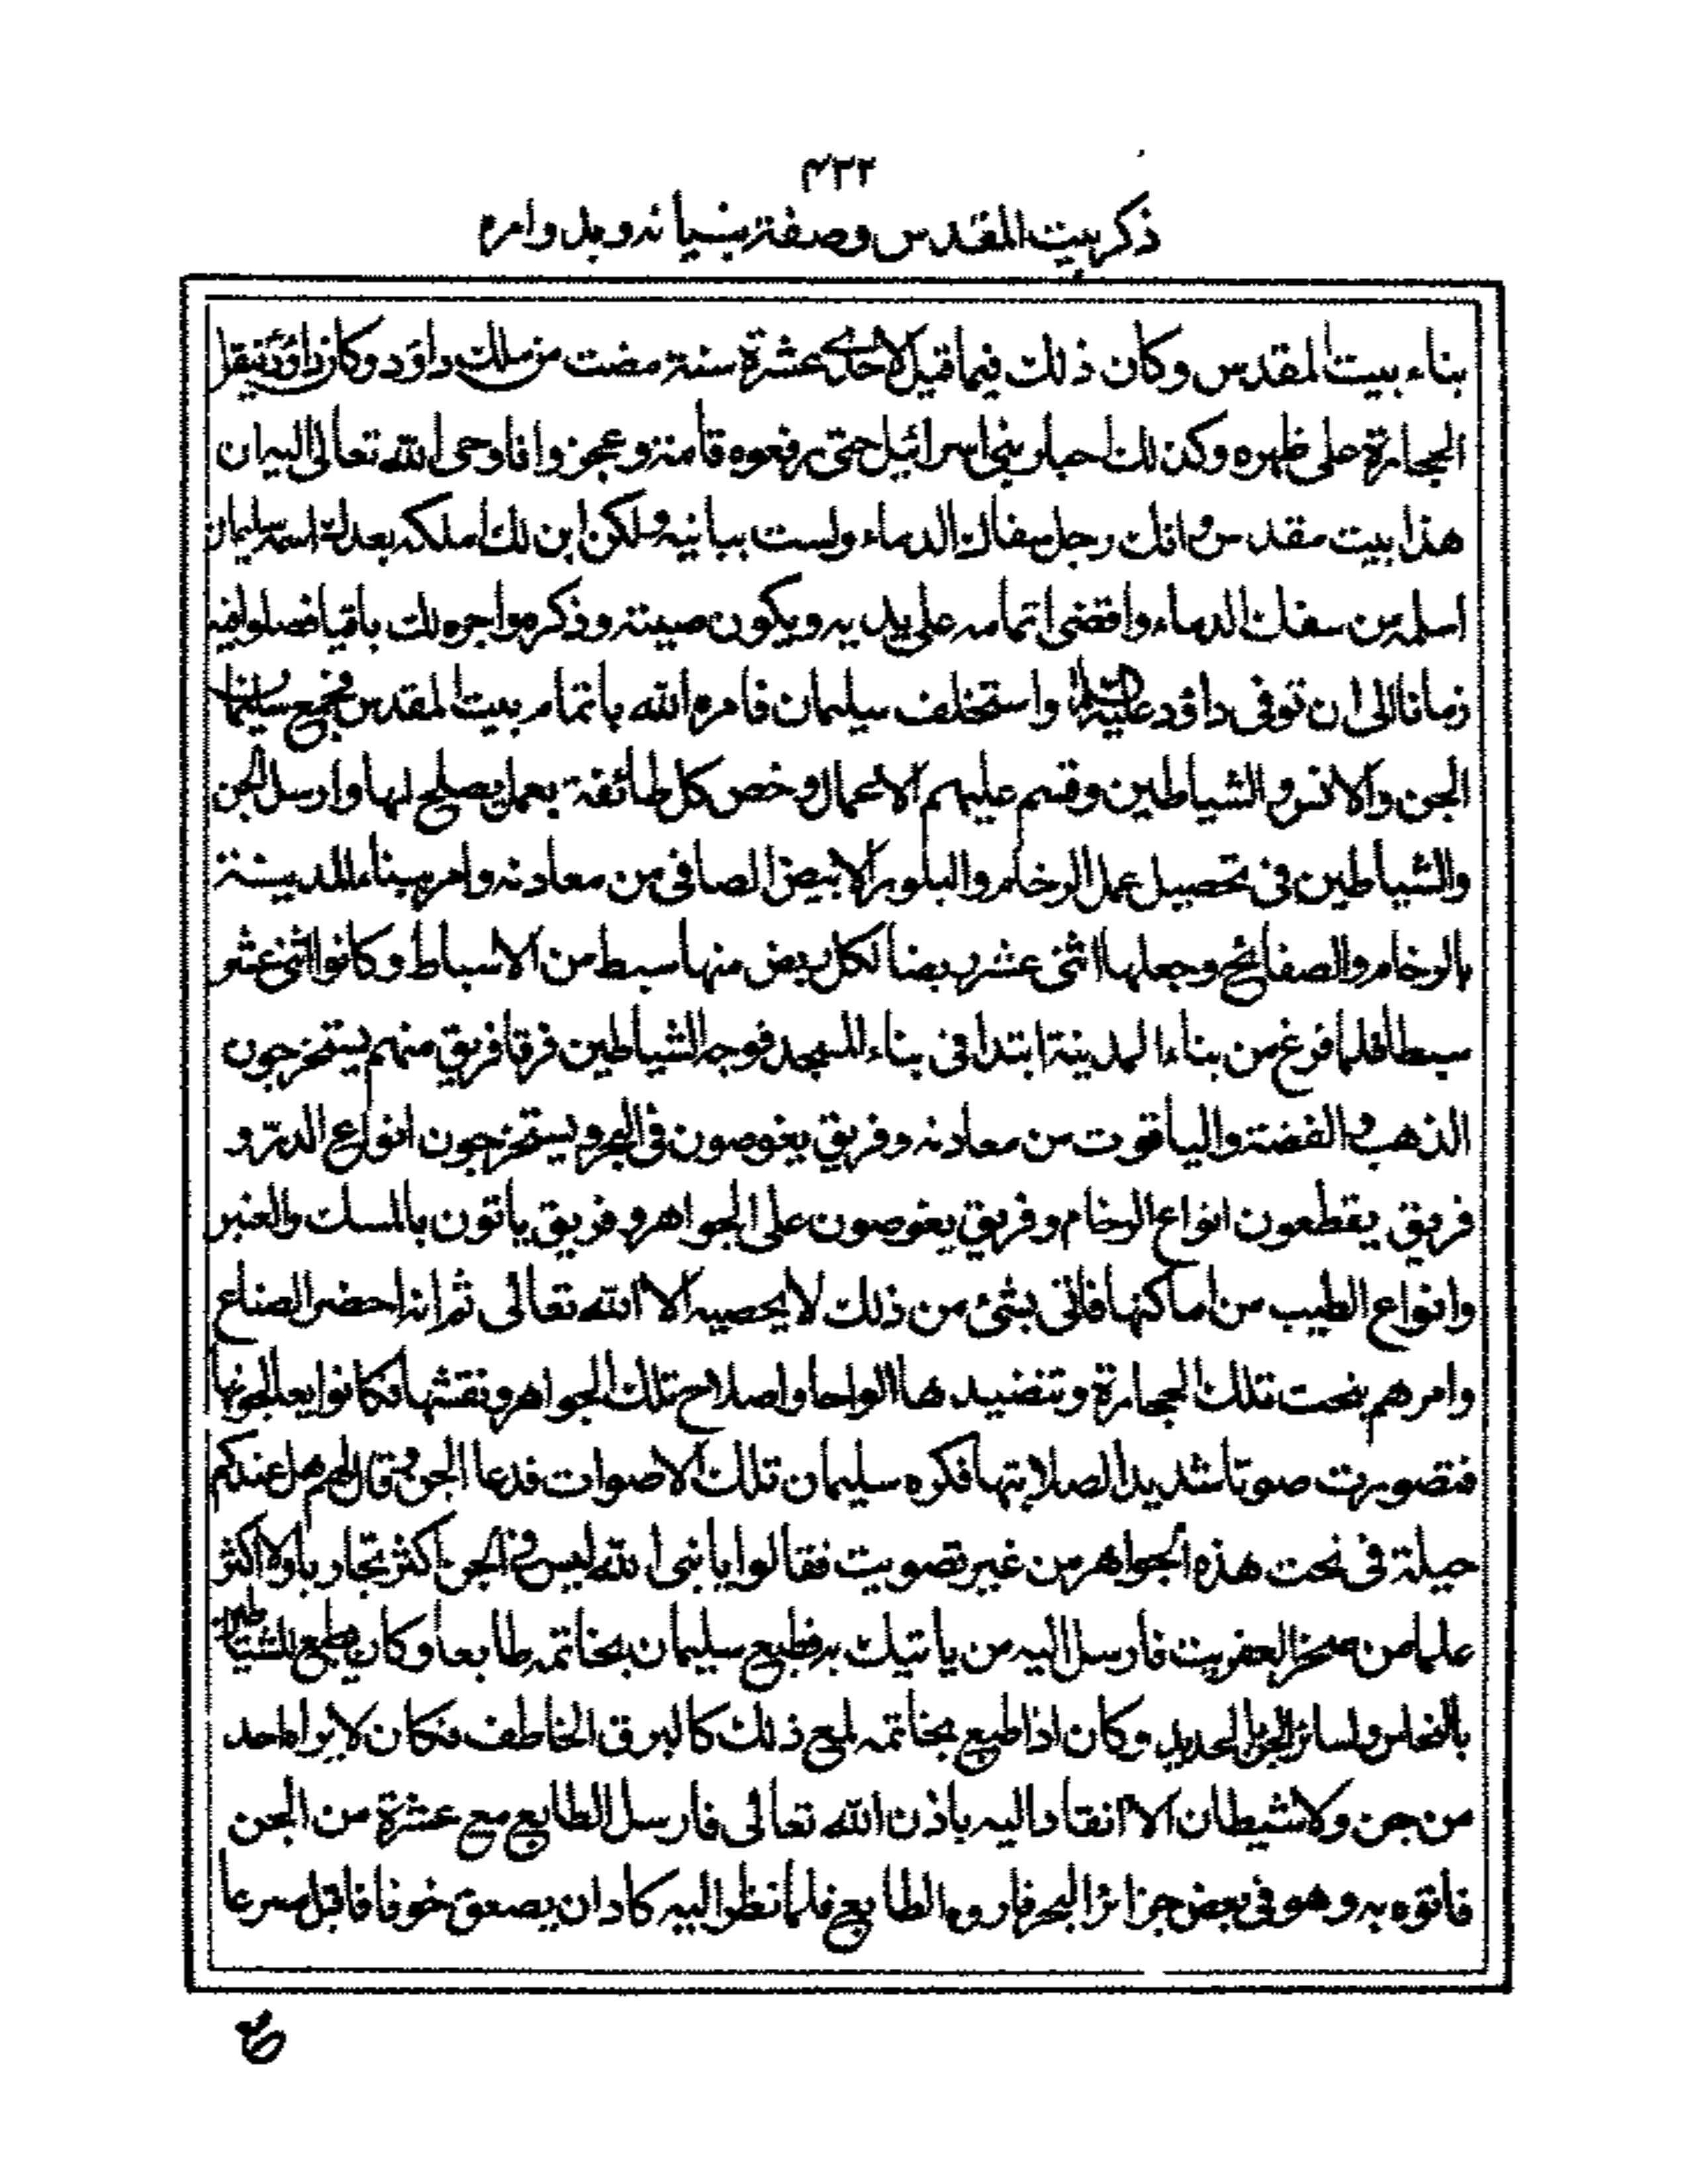 ۴۳۲
ذكر بيت المقدس وصفة بنيانه وبدو امره
بناء بيت المقدس وكان ذلك فيما قيل لاحدى عشرة سنة مضت من ملك داود وكان داود ينقل
الحجارة على ظهره وكذلك احبار بنى اسرائيل حتى رفعوه قامة وعجزوا فاوحى الله تعالى اليه ان
هذا بيت مقدس وانك رجل سفاك الدماء ولست ببانيه ولكن ابن لك املكه بعدك اسمه سليمان
اسلمه من سفك الدماء واقضى اتمامه على يديه ويكون صيته وذكره واجره لك باقيا فصلوا فيه
زمانا الى ان توفى داؤد عليه السلام واستخلف سليمان فامره الله باتمام بيت المقدس فجمع سليمان
الجن والانس والشياطين وقسم عليهم الاعمال وخص كل طائفة بعمل يصلح لها وارسل الجن
والشياطين فى تحصيل عمل الرخام والبلور الابيض الصافى من معادنه وامر ببناء المدينة
بالرخام والصفائح وجعلها اثنى عشر ربضا لكل ربض منها سبط من الاسباط وكانوا اثنى عشر
سبطا فلما فرغ من بناء المدينة ابتدا فى بناء المسجد فوجه الشياطين فرقا فريق منهم يستخرجون
الذهب والفضة والياقوت من معادنه وفريق يغوصون فى البحر ويستخرجون انواع الدرّ و
فريق يقطعون انواع الرخام وفريق يغوصون على الجواهر وفريق ياتون بالمسك والعنبر
وانواع الطيب من اماكنها فاتى بشئ من ذلك لا يحصيه الا الله تعالى ثم انه احضر الصناع
وامرهم بنحت تلك الحجارة وتنضيدها الواحا واصلاح تلك الجواهر ونقشها فكانوا يعالجونها
فتصوت صوتا شديدا لصلابتها فكره سليمان تلك الاصوات فدعا الجن وقال لهم هل عندكم
حيلة فى نحت هذه الجواهر من غير تصويت فقالوا يا نبى الله ليس فى الجن اكثر تجاربا ولا اكثر
علما من صخر العفريت فارسل اليه من ياتيك به فطبع سليمان بخاتمه طابعا وكان يطبع للشياطين
بالنحاس ولسائر الجن بالحديد وكان اذا طبع بخاتمه لمع ذلك كالبرق الخاطف فكان لا يراه احد
من جن ولا شيطان الا انقاد اليه باذن الله تعالى فارسل الطابع مع عشرة من الجن
فاتوه به وهو فى بعض جزائر البحر فاروه الطابع فلما نظر اليه كاد ان يصعق خوفا فاقبل مسرعا
مع